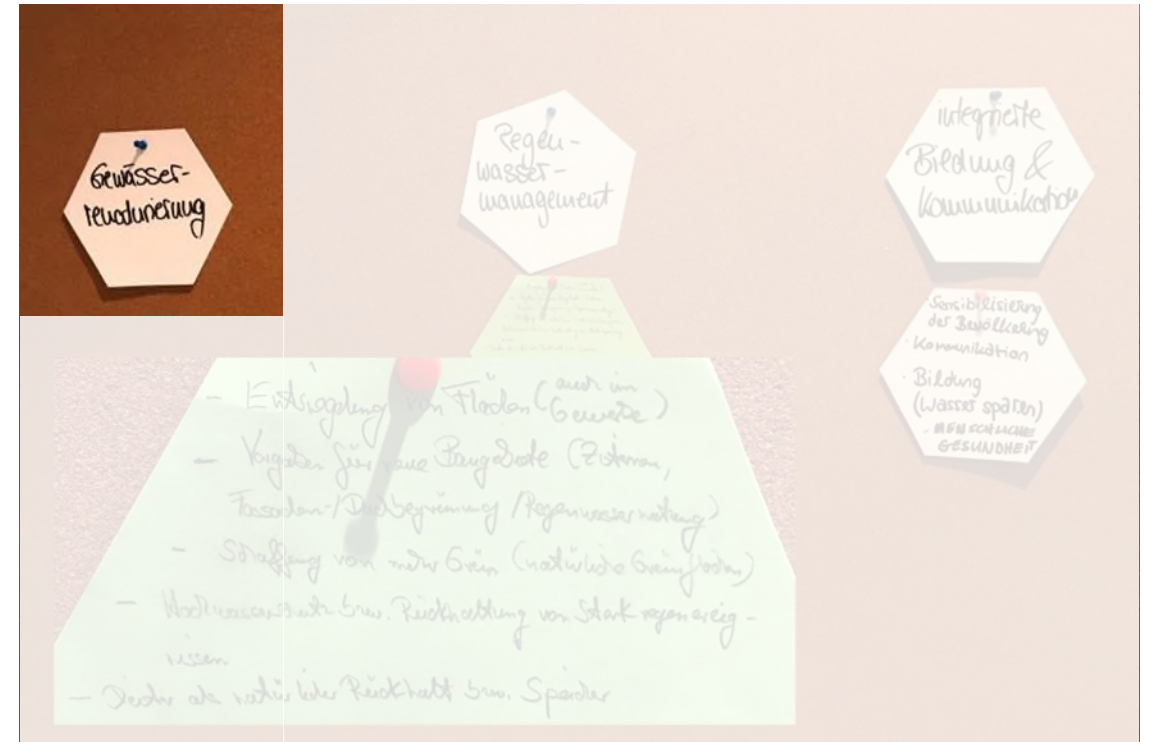 Gewässer-
renaturierung
Regen-
wasser-
management
integrierte
Bildung &
Kommunikation
· Sensibilisierung
der Bevölkerung
· Kommunikation
· Bildung
(Wasser sparen)
- MENSCHLICHE
GESUNDHEIT
- Entsiegelung von Flächen (auch im
Gewerbe)
- Vorgaben für neue Baugebiete (Zisternen,
Fassaden-/Dachbegrünung/Regenwassernutzung)
- Schaffung von mehr Grün (natürliche Grünflächen)
- Hochwasserschutz bzw. Rückhaltung von Starkregenereig-
nissen
- als natürlicher Rückhalt bzw. Speicher